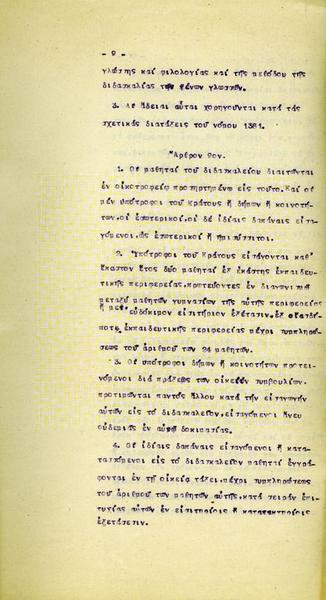 - 9 -
γλώσσης καί φιλολογίας καί τῆς μεθόδου τῆς
διδασκαλίας τῶν ξένων γλωσσῶν.
3. Αἱ ἄδειαι αὗται χορηγοῦνται κατά τάς
σχετικάς διατάξεις τοῦ νόμου 1381.
Ἄρθρον 9ον.
1. Οἱ μαθηταί τοῦ διδασκαλείου διαιτῶνται
ἐν οἰκοτροφείῳ προσηρτημένῳ εἰς τοῦτο. Καί οἱ
μέν ὑπότροφοι τοῦ Κράτους ἤ δήμων ἤ κοινοτή-
των, οἱ ἐσωτερικοί, οἱ δέ ἰδίαις δαπάναις εἰσα-
γόμενοι, ὡς ἐσωτερικοί ἤ ἡμισύσσιτοι.
2. Ὑπότροφοι τοῦ Κράτους εἰσάγονται καθ'
ἕκαστον ἔτος δύο μαθηταί ἐξ ἑκάστης ἐκπαιδευ-
τικῆς περιφερείας, πρωτεύοντες ἐν διαγωνισμῷ
μεταξύ μαθητῶν γυμνασίων τῆς αὐτῆς περιφερείας
ἤ μετ' εὐδόκιμον εἰσιτήριον ἐξέτασιν, ἐξ οἱασδή-
ποτε ἐκπαιδευτικῆς περιφερείας μέχρι συμπληρώ-
σεως τοῦ ἀριθμοῦ τῶν 24 μαθητῶν.
3. Οἱ ὑπότροφοι δήμων ἤ κοινοτήτων προτει-
νόμενοι διά πράξεως τῶν οἰκείων συμβουλίων,
προτιμῶνται παντός ἄλλου κατά τήν εἰσαγωγήν
αὐτῶν εἰς τό διδασκαλεῖον, εἰσαγόμενοι ἄνευ
οὐδεμιᾶς ἐν αὐτῷ δοκιμασίας.
4. Οἱ ἰδίαις δαπάναις εἰσαγόμενοι ἤ κατα-
τασσόμενοι εἰς τό διδασκαλεῖον μαθηταί ἐγγρά-
φονται ἐν τῇ οἰκείᾳ τάξει, μέχρι συμπληρώσεως
τοῦ ἀριθμοῦ τῶν μαθητῶν αὐτῆς, κατά σειράν ἐπι-
τυχίας αὐτῶν ἐν εἰσιτηρίοις ἤ κατατακτηρίοις
ἐξετάσεσιν.